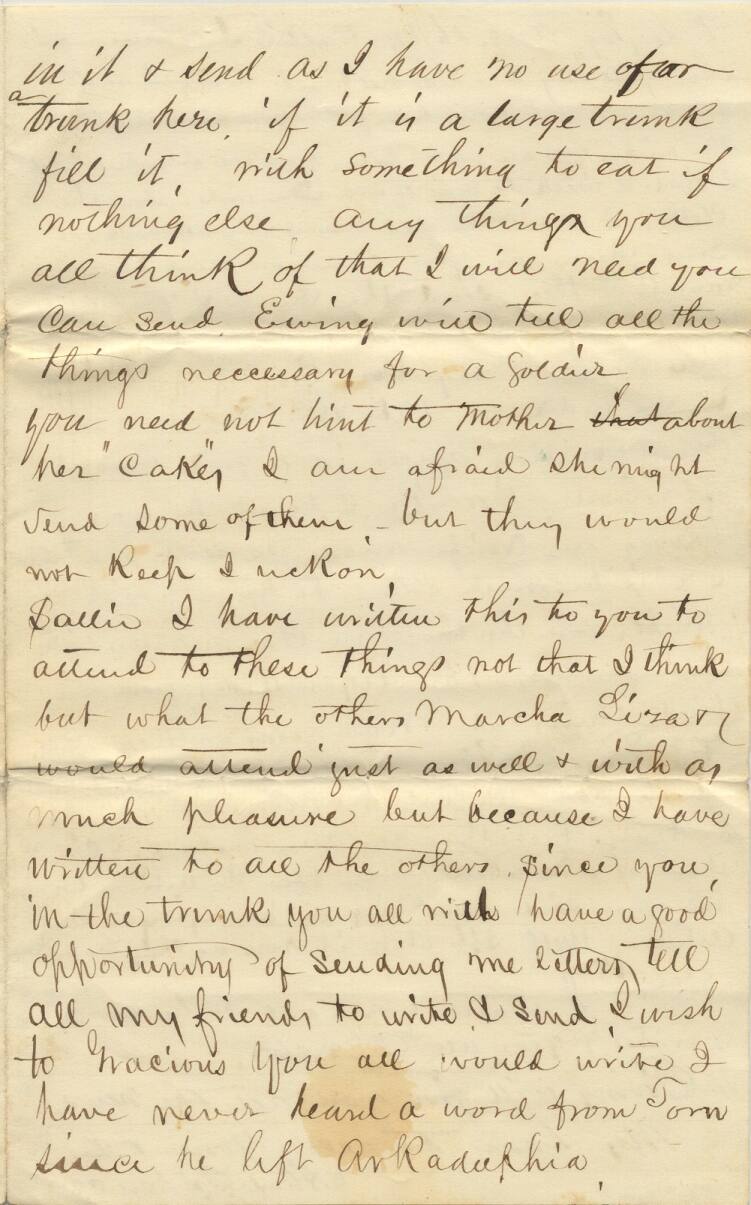 in it & send as I have no use of ar
a trunk here, if it is a large trunk
fill it, with something to eat if
nothing else any things you
all think of that I will need you
can send. Ewing will tell all the
things neccessary for a soldier
you need not hint to Mother that about
her "Cakes", I am afraid she might
send some of them, - but they would
not keep I reckon,
Sallie I have written this to you to
attend to these things not that I think
but what the others Marcha Liza &
would attend just as well & with as
much pleasure but because I have
written to all the others, since you,
in the trunk you all will have a good
opportunity of sending me letters, tell
all my friends to write & send, I wish
to Gracious you all would write I
have never heard a word from Tom
since he left Arkadelphia,